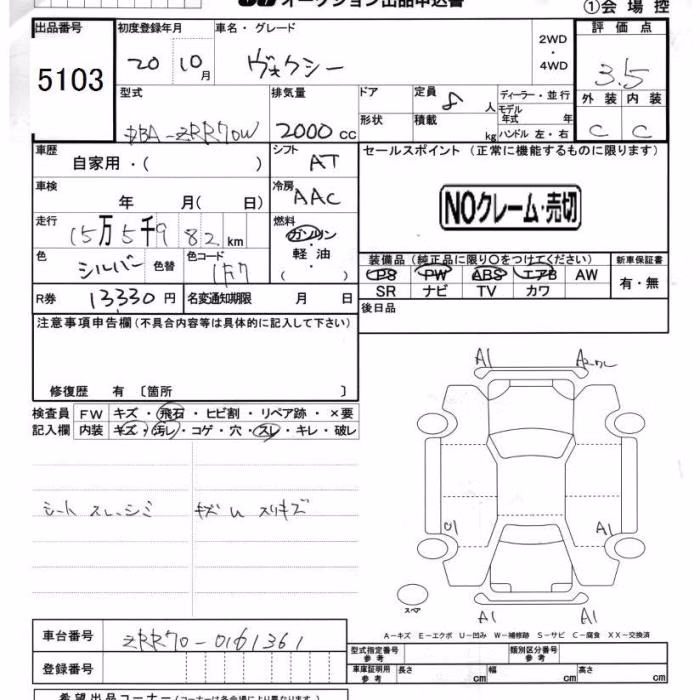 オークション出品申込書
①会場控
出品番号 初度登録年月 車名・グレード 評価点
5103 20 10月 ヴォクシー 2WD・4WD 3.5
型式 排気量 ドア 定員 8人 ディーラー・並行 外装 内装
DBA-ZRR70W 2000cc 形状 積載 kg モデル年式 年 C C
ハンドル 左・右
車歴 自家用・( ) シフト AT セールスポイント (正常に機能するものに限ります)
車検 年 月( 日) 冷房 AAC
NOクレーム・売切
走行 15万5千982km 燃料 ガソリン・軽油・( )
色 シルバー 色替 色コード 1F7
装備品(純正品に限り○をつけてください) 新車保証書
PS PW ABS エアB AW 有・無
SR ナビ TV カワ
R券 13330円 名変通知期限 月 日 後日品
注意事項申告欄(不具合内容等は具体的に記入して下さい)
修復歴 有 〔箇所 〕
検査員 FW キズ・飛石・ヒビ割・リペア跡・×要
記入欄 内装 キズ・汚レ・コゲ・穴・スレ・キレ・破レ
A1
シート スレ、シミ キズ スリキズ
A1
スペア
A1 A1
A-キズ E-エクボ U-凹み W-補修跡 S-サビ C-腐食 XX-交換済
車台番号 ZRR70-0161361
型式指定番号 参考 類別区分番号 参考
登録番号 車庫証明用 参考 長さ cm 幅 cm 高さ cm
希望出品コーナー